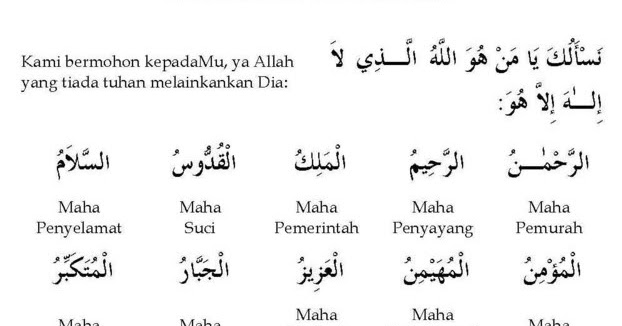 Kami bermohon kepadaMu, ya Allah
yang tiada tuhan melainkankan Dia:
نَسْأَلُكَ يَا مَنْ هُوَ اللَّهُ الَّــذِي لاَ
إِلـٰـهَ إِلاَّ هُوَ:
الرَّحْمٰـــنُ الرَّحِيمُ الْمَلِكُ الْقُدُّوسُ السَّلاَمُ
Maha Maha Maha Maha Maha
Penyelamat Suci Pemerintah Penyayang Pemurah
الْمُؤْمِنُ الْمُهَيْمِنُ الْعَزِيزُ الْجَبَّارُ الْمُتَكَبِّرُ
Maha Maha Maha Maha